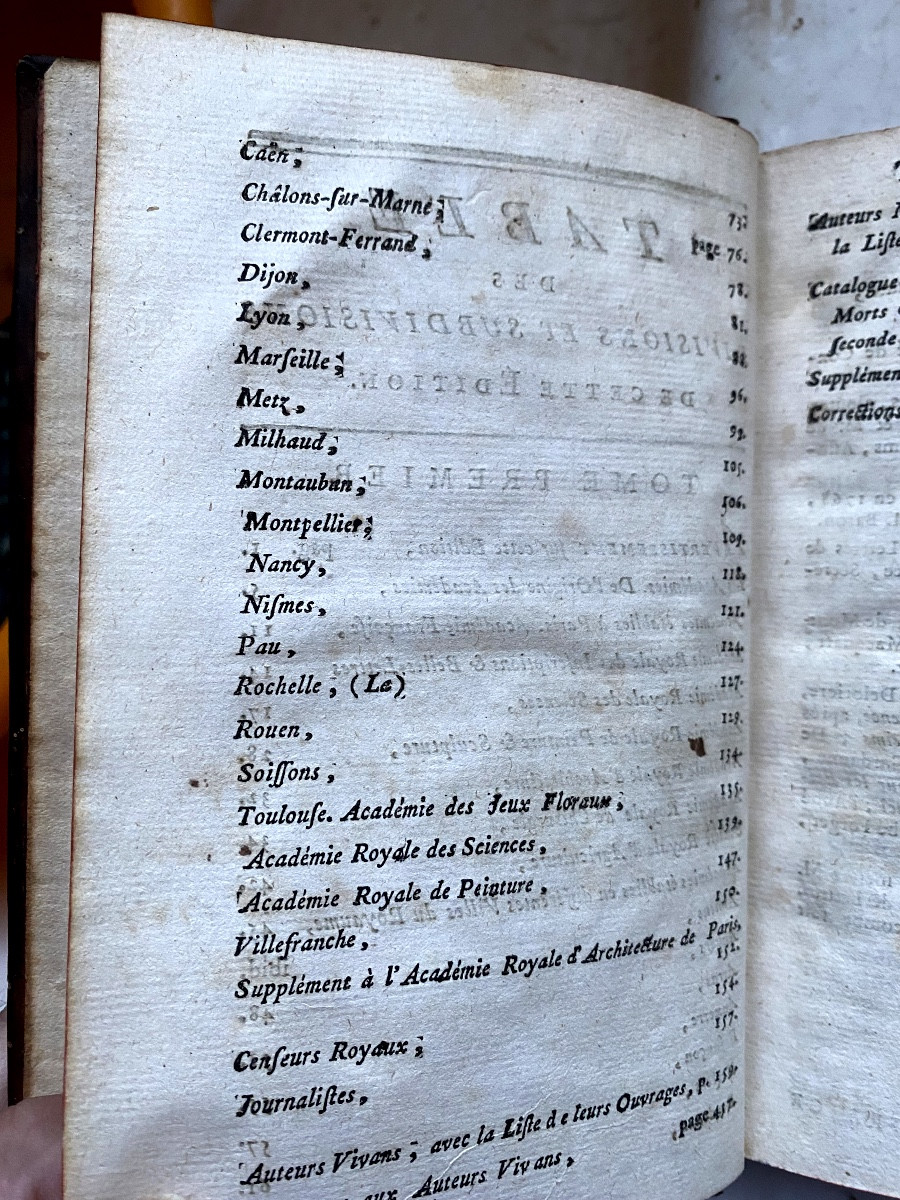 Caën,
Châlons-ſur-Marne, page 76.
Clermont-Ferrand, 78.
Dijon, 81.
Lyon, 88.
Marſeille, 96.
Metz, 99.
Milhaud, 105.
Montauban, 106.
Montpellier, 109.
Nancy, 118.
Niſmes, 121.
Pau, 124.
Rochelle, (La) 127.
Rouen, 129.
Soiſſons, 134.
Toulouſe. Académie des Jeux Floraux, 135.
Académie Royale des Sciences, 139.
Académie Royale de Peinture, 147.
Villefranche, 150.
Supplément à l'Académie Royale d'Architecture de Paris,
152.
Cenſeurs Royaux, 154.
Journaliſtes, 157.
Auteurs Vivans, avec la Liſte de leurs Ouvrages, p. 159.
aux Auteurs Vivans, page 437.
Auteurs
la Liſte
Catalogue
Morts
ſeconde
Supplémen
Corrections